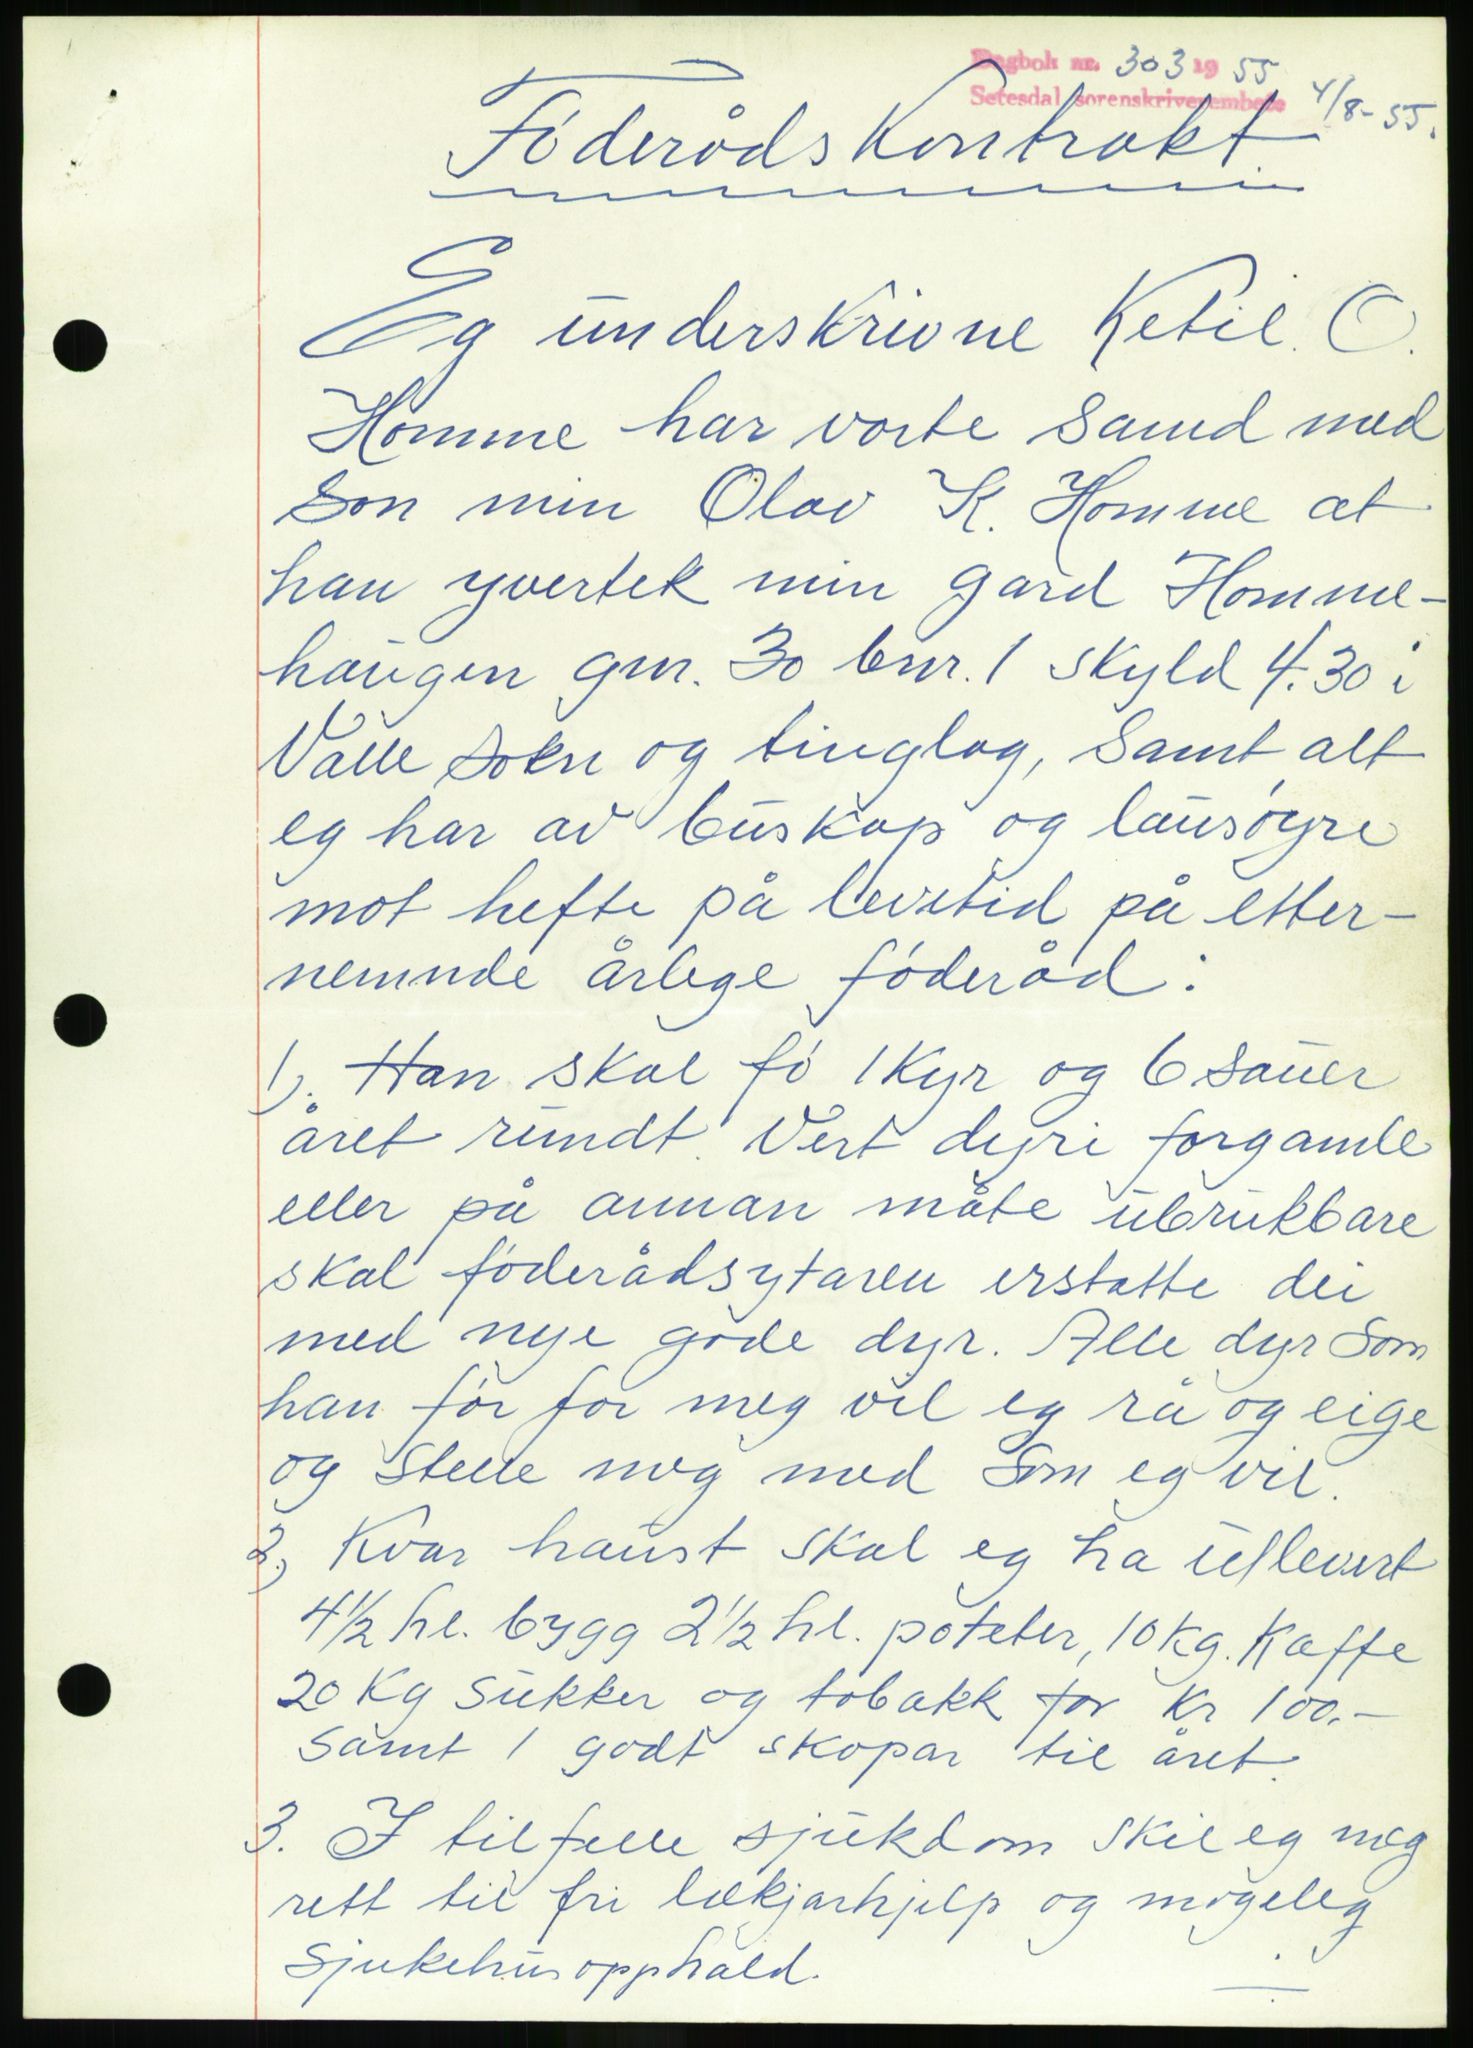 Dagbok nr. 303 19 55
Setesdal sorenskriverembete 4/8-55.
Føderåds Kontrakt.
Eg underskrivne Ketil. O.
Homme har vorte samd med
son min Olav K. Homme at
han yvertek min gard Homme-
haugen gnr. 30 bnr. 1 skyld 4.30 i
Valle sokn og tinglag, samt alt
eg har av buskap og lausøyre
mot hefte på levetid på etter-
nemnde årlege føderåd:
1). Han skal fø 1 Kyr og 6 sauer
året rundt. Vert dyri forgamle
eller på annan måte ubrukbare
skal føderådsytaren erstatte dei
med nye gode dyr. Alle dyr som
han før for meg vil eg rå og eige
og stelle meg med som eg vil.
2.) Kvar haust skal eg ha utlevert
4½ hl. bygg 2½ hl. poteter, 10 kg. Kaffe
20 Kg sukker og tobakk for Kr 100.-
samt 1 godt skopar til året.
3. I tilfelle sjukdom skil eg meg
rett til fri lækjarhjelp og mogeleg
sjukehusopphald.